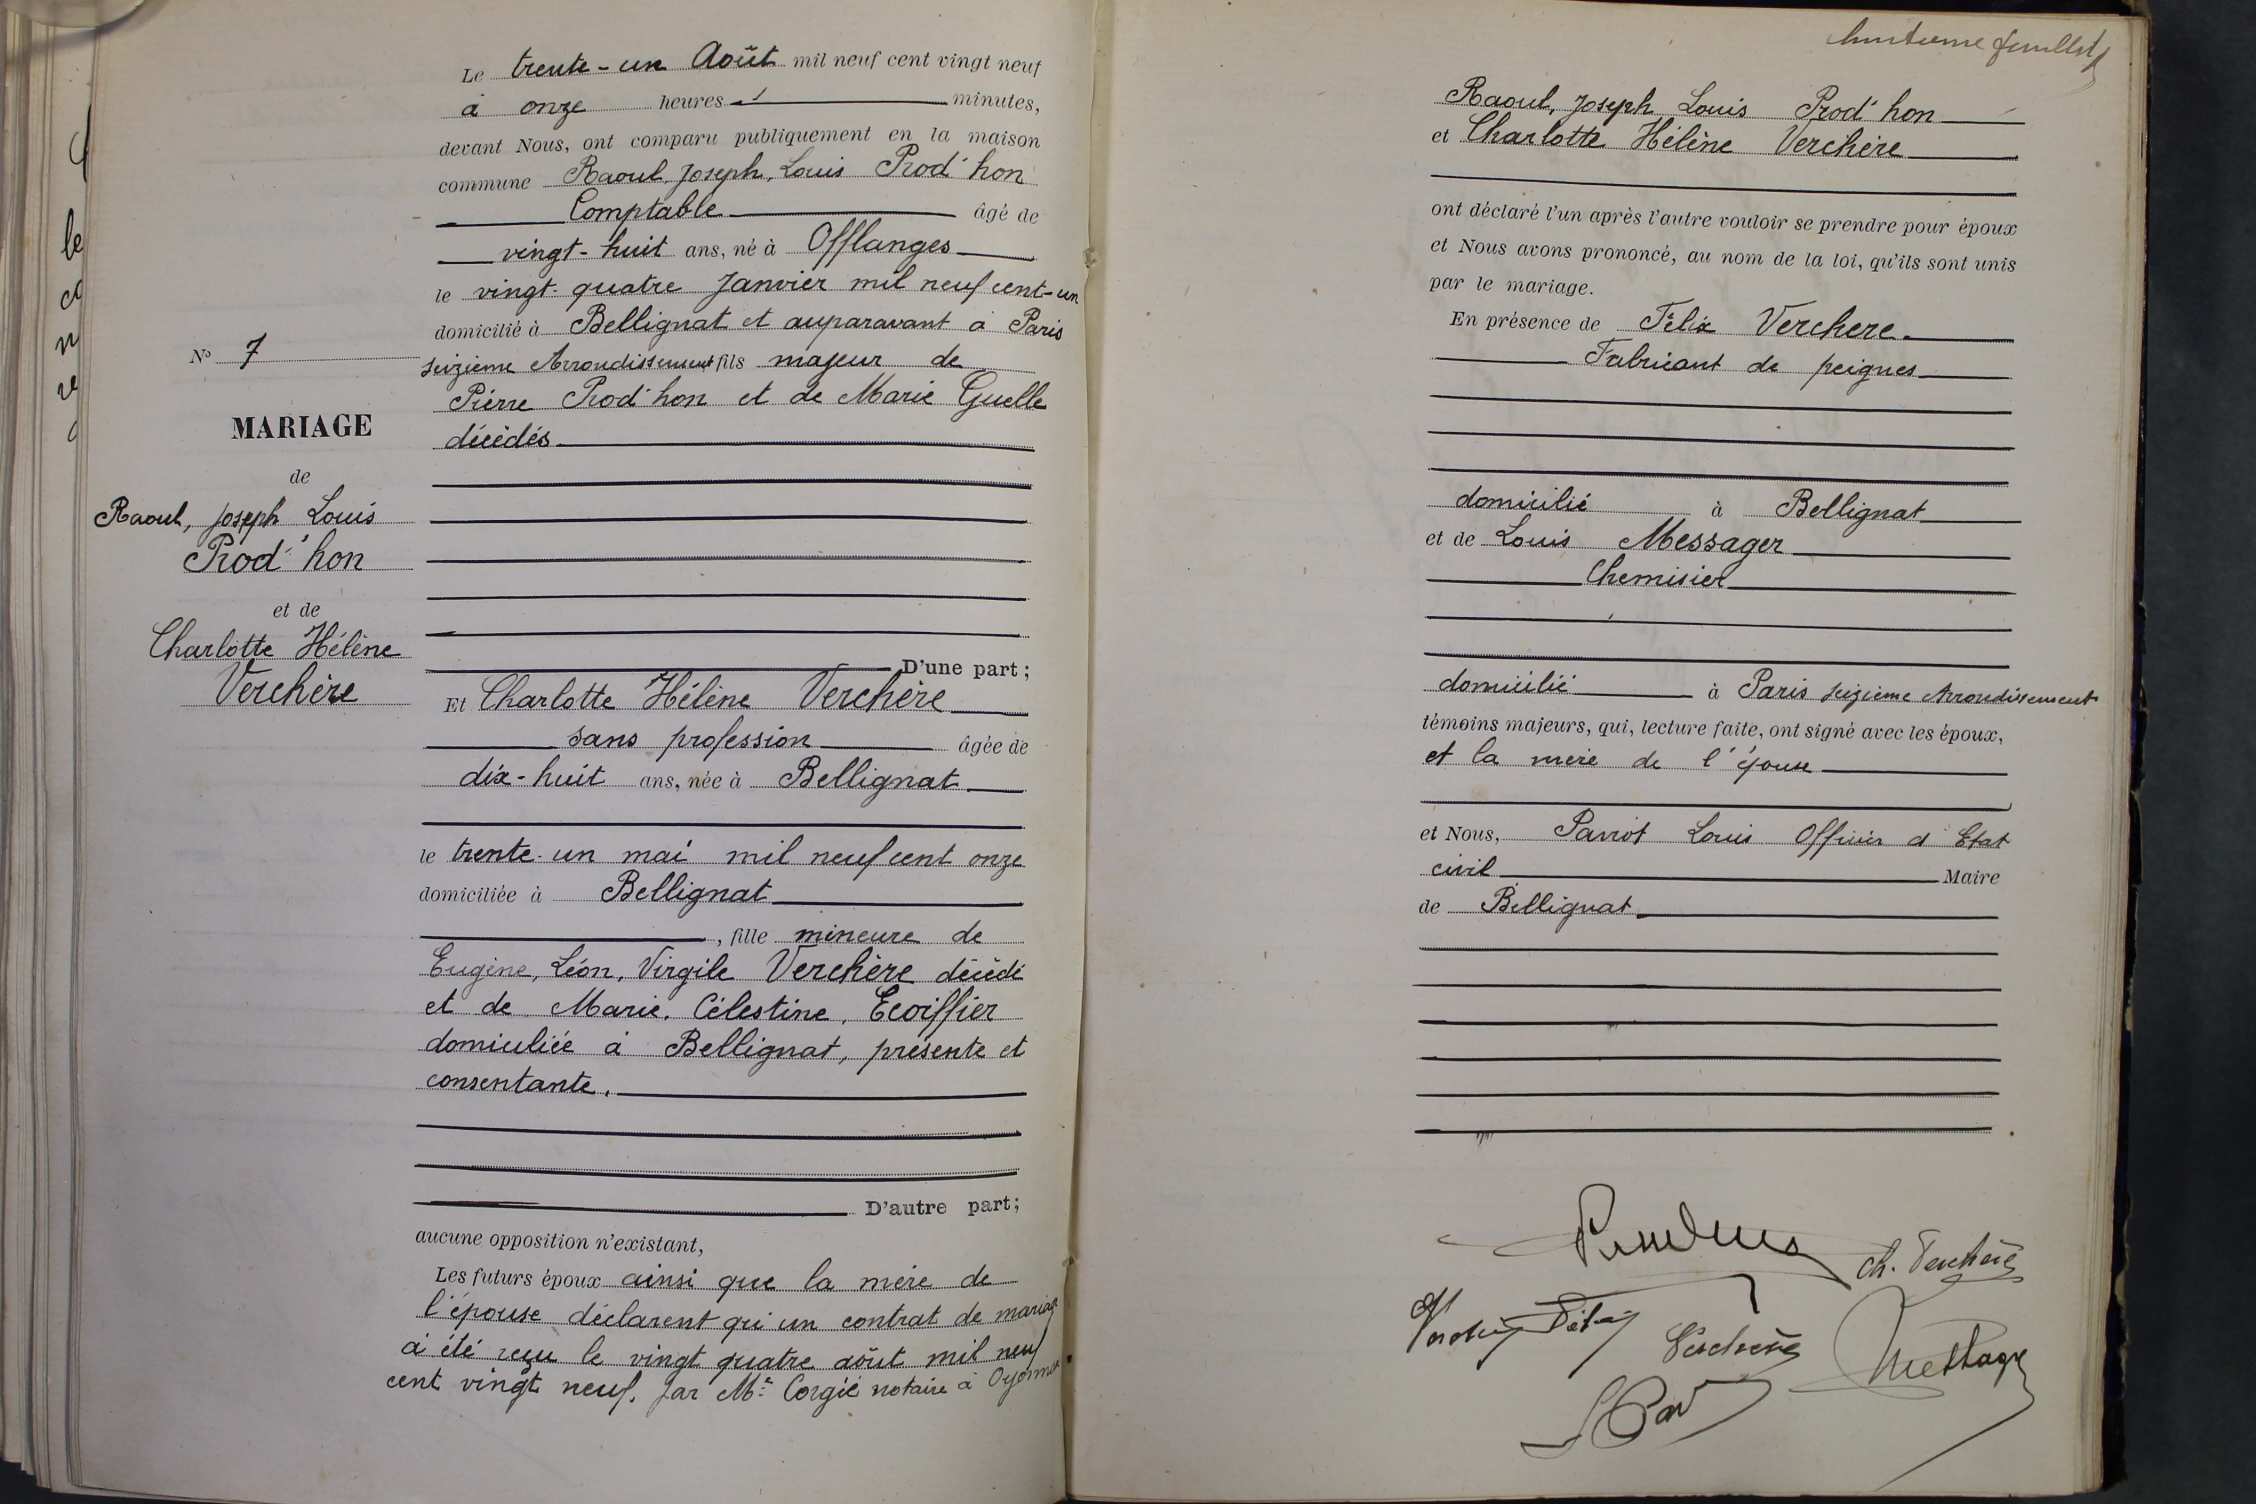 Le trente-un Août mil neuf cent vingt neuf
à onze heures minutes,
devant Nous, ont comparu publiquement en la maison
commune Raoul, Joseph, Louis Prod'hon
Comptable âgé de
vingt-huit ans, né à Offlanges
le vingt-quatre Janvier mil neuf cent-un
domicilié à Bellignat et auparavant à Paris
seizième Arrondissement fils majeur de
Pierre Prod'hon et de Marie Guelle
décédés
N° 7
MARIAGE
de
Raoul, Joseph Louis
Prod'hon
et de
Charlotte Hélène
Verchère
D'une part;
Et Charlotte Hélène Verchère
sans profession âgée de
dix-huit ans, née à Bellignat
le trente-un mai mil neuf cent onze
domiciliée à Bellignat
, fille mineure de
Eugène, Léon, Virgile Verchère décédé
et de Marie, Célestine, Ecoiffier
domiciliée à Bellignat, présente et
consentante.
D'autre part;
aucune opposition n'existant,
Les futurs époux ainsi que la mère de
l'épouse déclarent qu'un contrat de mariage
a été reçu le vingt quatre août mil neuf
cent vingt neuf, par Me Corgié notaire à Oyonnax
huitième feuillet
Raoul, Joseph Louis Prod'hon
et Charlotte Hélène Verchère
ont déclaré l'un après l'autre vouloir se prendre pour époux
et Nous avons prononcé, au nom de la loi, qu'ils sont unis
par le mariage.
En présence de Félix Verchere
Fabricant de peignes
domicilié à Bellignat
et de Louis Messager
Chemisier
domicilié à Paris seizième Arrondissement
témoins majeurs, qui, lecture faite, ont signé avec les époux,
et la mère de l'épouse
et Nous, Louis Officier d'Etat
civil Maire
de Bellignat
Ch. Verchère
Verchère Félix
Verchère
Messager